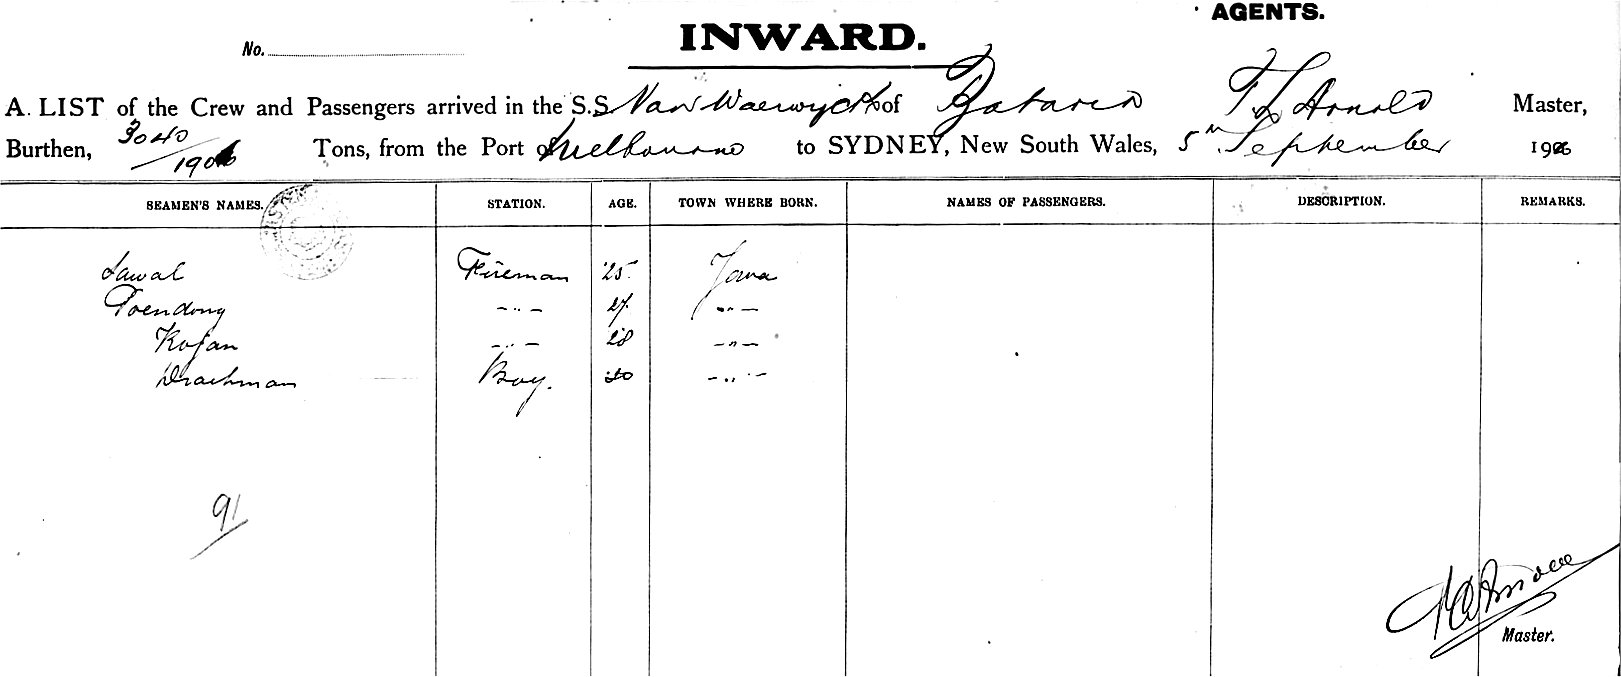 AGENTS.
INWARD.
No.
A. LIST of the Crew and Passengers arrived in the S.S. Van Waerwyck of Batavia F L Arnold Master,
Burthen, 3040/1906 Tons, from the Port of Melbourne to SYDNEY, New South Wales, 5th September 1906
SEAMEN'S NAMES. STATION. AGE. TOWN WHERE BORN. NAMES OF PASSENGERS. DESCRIPTION. REMARKS.
Sawal Fireman 25 Java
Poendong -"- 27 -"-
Kojan -"- 28 -"-
Draehman Boy. 20 -"-
91
Master.